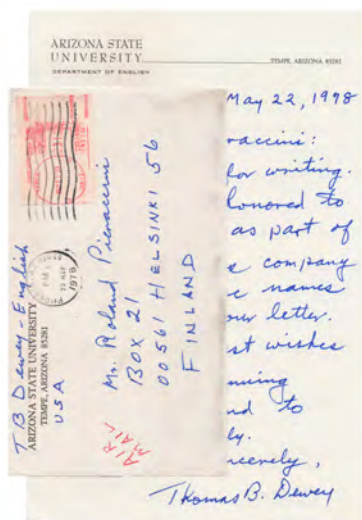 ARIZONA STATE
UNIVERSITY
DEPARTMENT OF ENGLISH
TEMPE, ARIZONA 85281
May 22, 1978
raccini:
for writing.
honored to
as part of
e company
e names
our letter.
st wishes
ming
nd to
ly.
ncerely,
Thomas B. Dewey
T B Dewey - English
ARIZONA STATE UNIVERSITY
TEMPE, ARIZONA 85281
USA
1978
Mr. Roland Pieraccini
BOX 21
00561 HELSINKI 56
FINLAND
AIR
MAIL